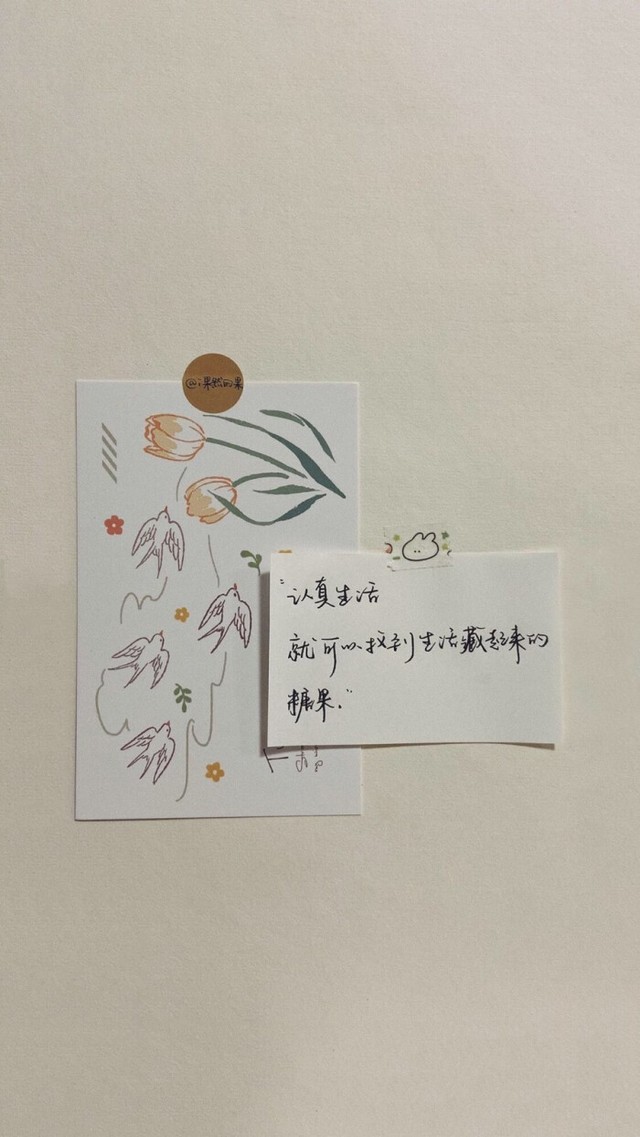 @i果然的果
"认真生活
就可以找到生活藏起来的
糖果."